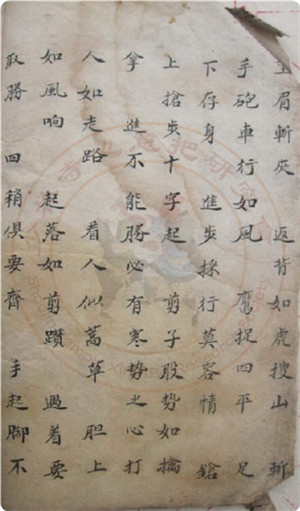 眉斬灰 返背如虎搜山 斬
手砲車行如風 鷹捉四平 足
下存身 進步採行莫容情 鎗
上搶步十字起 剪子股勢如擒
拿 進不能勝必有寒勢之心打
人如走路 看人似蒿草 胆上
如風响 起落如剪躦 遇着要
取勝 四稍俱要齊 手起脚不